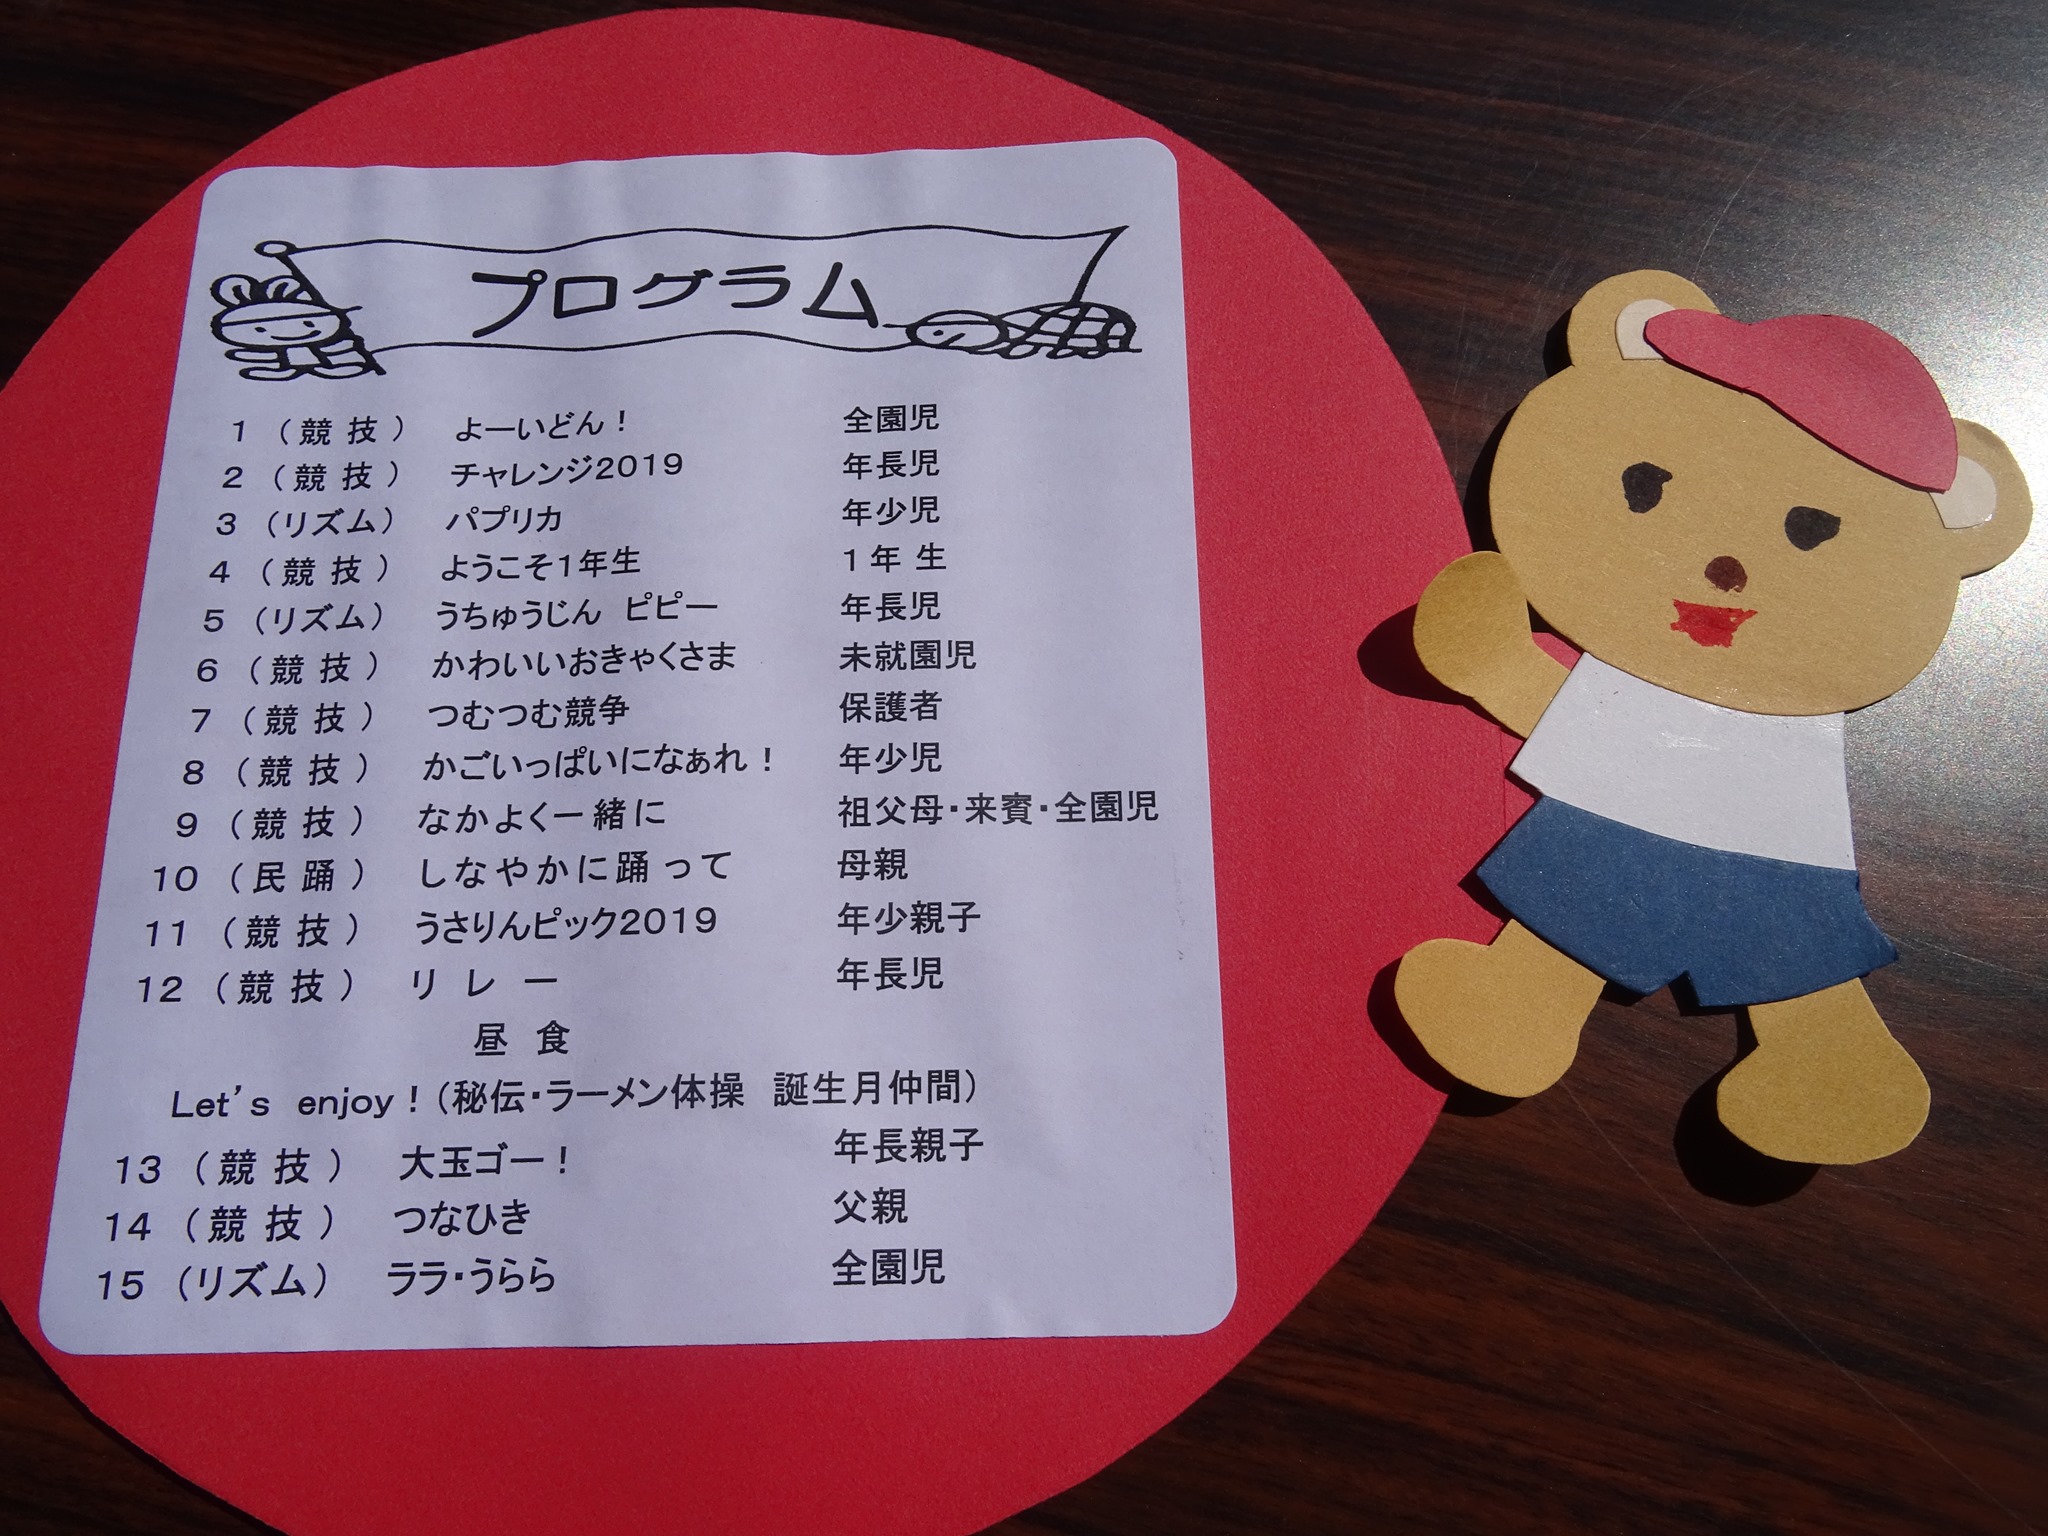 プログラム
1 (競技) よーいどん! 全園児
2 (競技) チャレンジ2019 年長児
3 (リズム) パプリカ 年少児
4 (競技) ようこそ1年生 1年生
5 (リズム) うちゅうじん ピピー 年長児
6 (競技) かわいいおきゃくさま 未就園児
7 (競技) つむつむ競争 保護者
8 (競技) かごいっぱいになぁれ! 年少児
9 (競技) なかよく一緒に 祖父母・来賓・全園児
10 (民踊) しなやかに踊って 母親
11 (競技) うさりんピック2019 年少親子
12 (競技) リレー 年長児
昼食
Let's enjoy!(秘伝・ラーメン体操 誕生月仲間)
13 (競技) 大玉ゴー! 年長親子
14 (競技) つなひき 父親
15 (リズム) ララ・うらら 全園児